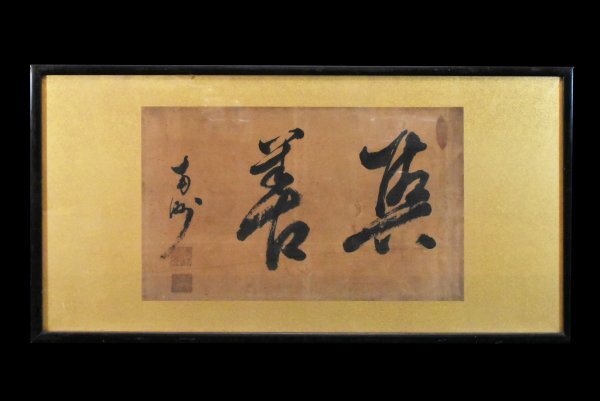 真善
南洲